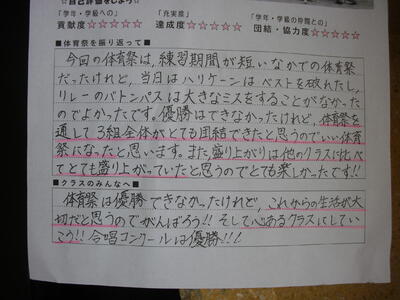 ☆自己評価をしよう☆
「学年・学級への」 「充実度」 「学年・学級の仲間との」
貢献度☆☆☆☆☆ 達成度☆☆☆☆☆ 団結・協力度☆☆☆☆☆
■体育祭を振り返って■
今回の体育祭は、練習期間が短いなかでの体育祭
だったけれど、当日はハリケーンはベストを破れたし、
リレーのバトンパスは大きなミスをすることがなかった
のでよかったです。優勝はできなかったけれど、体育祭を
通して3組全体がとても団結できたと思うのでいい体育
祭になったと思います。また、盛り上がりは他のクラスに比べ
てとても盛り上がっていたと思うのでとても楽しかったです!!
■クラスのみんなへ■
体育祭は優勝できなかったけれど、これからの生活が大
切だと思うのでがんばろう!! そして心あるクラスにしてい
こう!! 合唱コンクールは優勝!!!